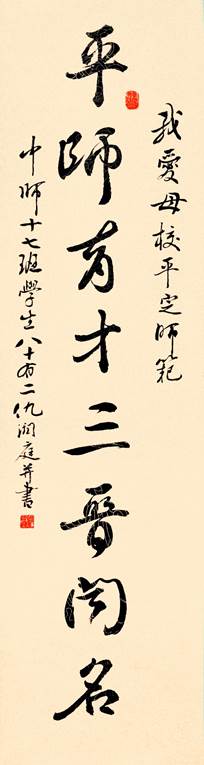 我愛母校平定師範
平師育才三晉闻名
中师十七班學生八十有二仇润庭并書